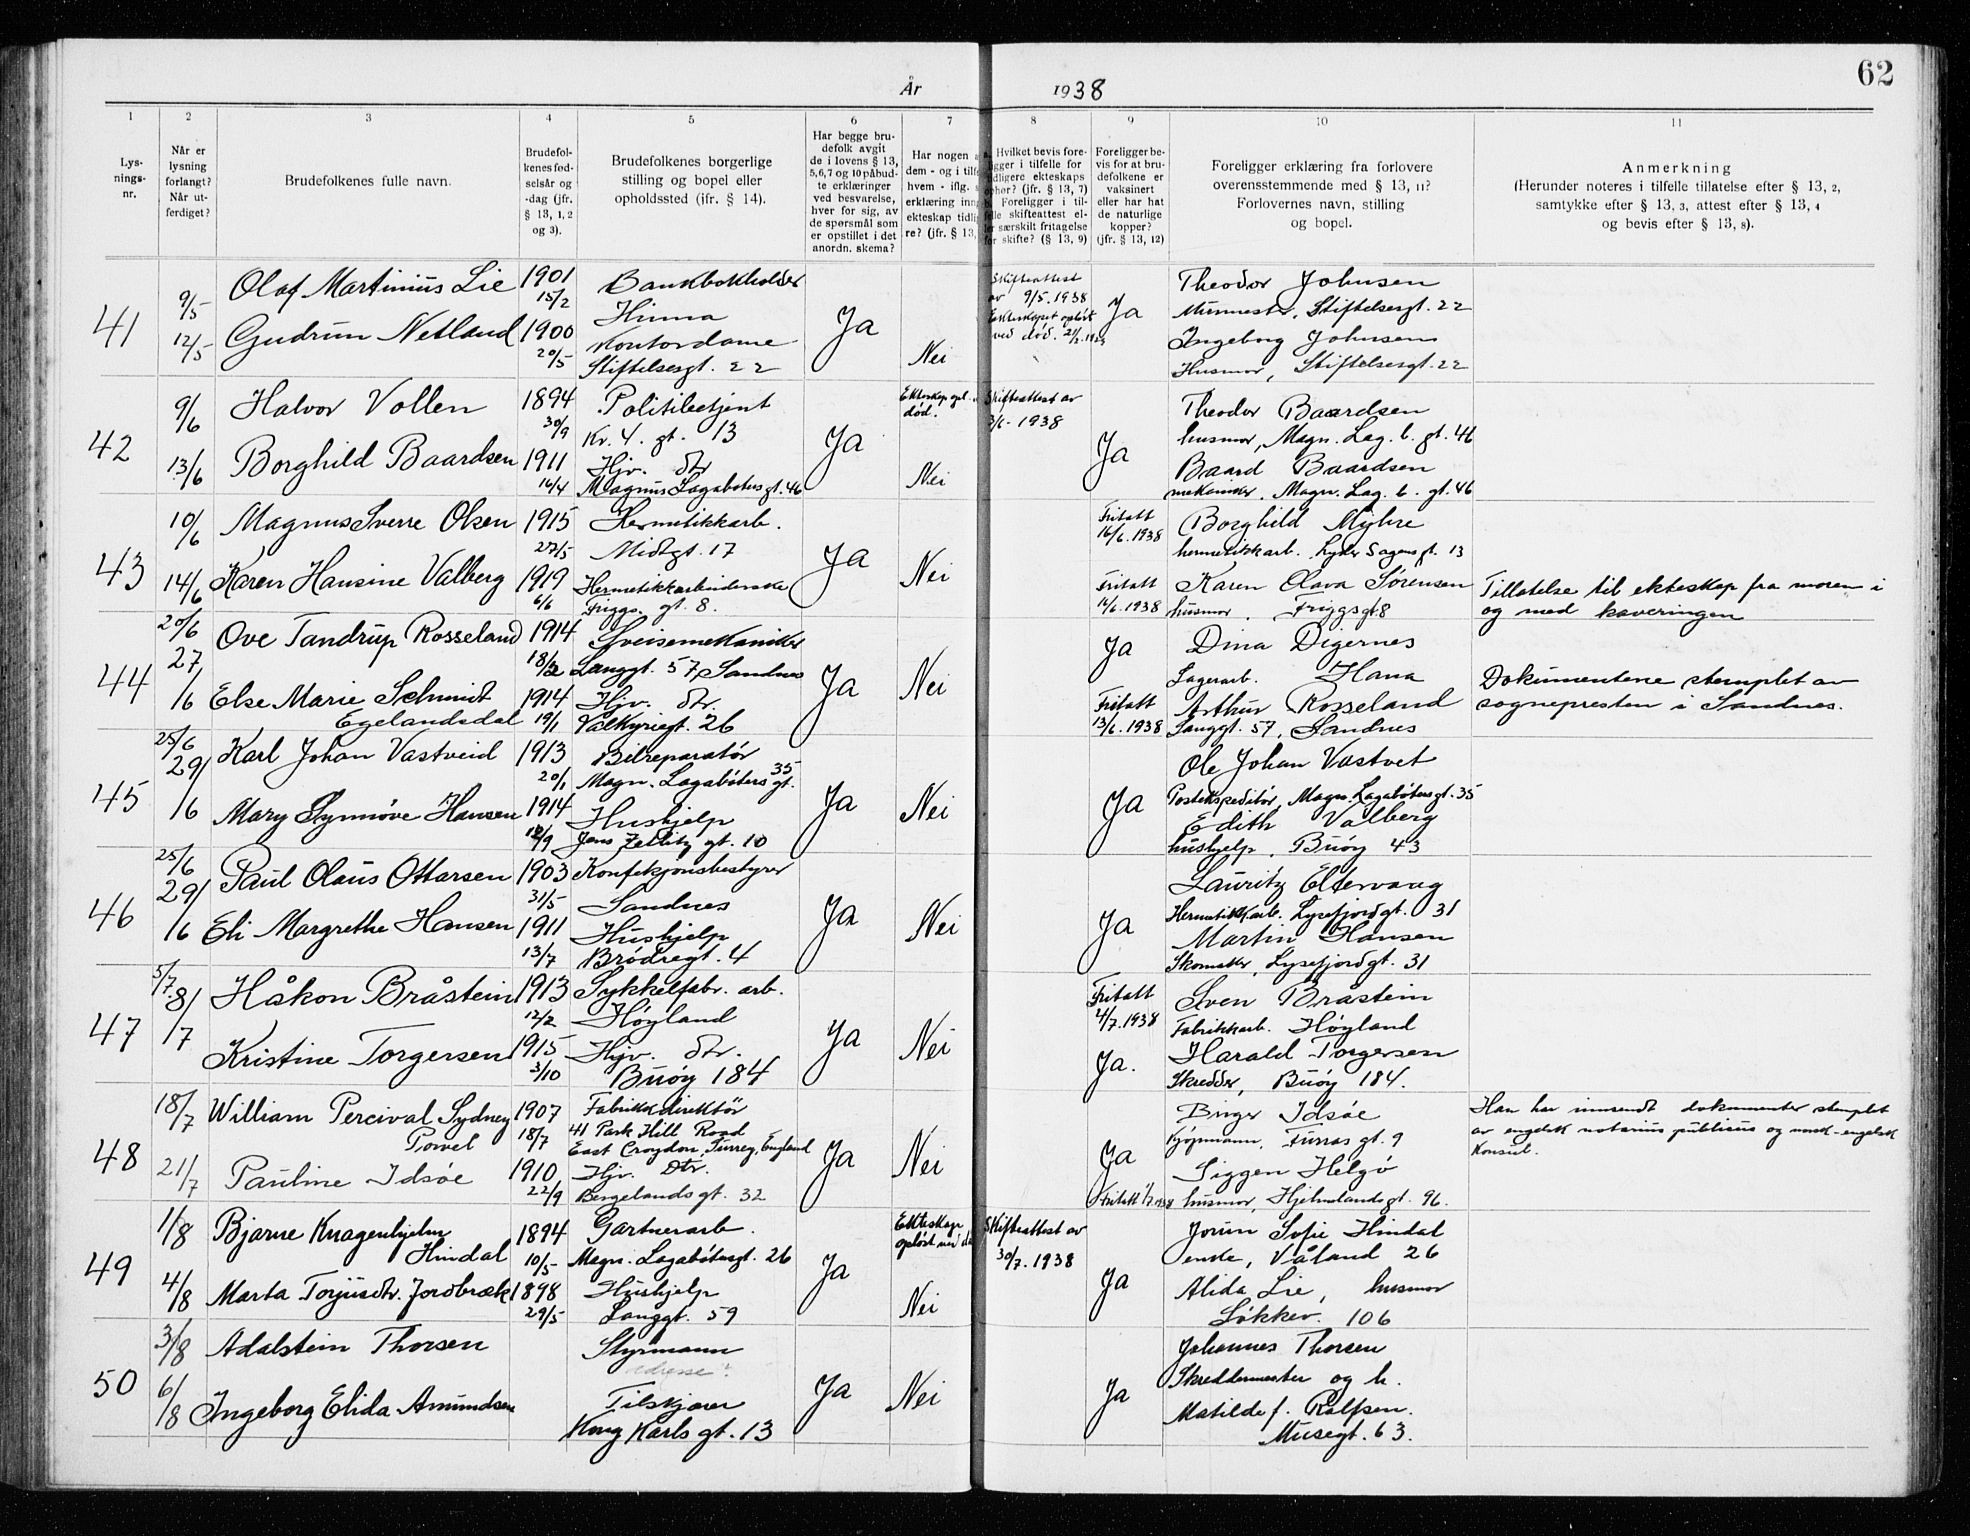 62
År 1938
1 2 3 4 5 6 7 8 9 10 11
Lys-
nings-
nr.
Når er
lysning
forlangt?
Når ut-
ferdiget?
Brudefolkenes fulle navn.
Brudefol-
kenes fød-
selsår og
-dag (jfr.
§ 13, 1, 2
og 3).
Brudefolkenes borgerlige
stilling og bopel eller
opholdssted (jfr. § 14).
Har begge bru-
defolk avgit
de i lovens § 13,
5,6,7 og 10 påbud-
te erklæringer
ved besvarelse,
hver for sig, av
de spørsmål som
er opstillet i det
anordn. skema?
Har nogen a
dem - og i tilf
hvem - iflg.
erklæring inn
ekteskap tidlig
re? (jfr. § 13,
Hvilket bevis fore-
ligger i tilfelle for
tidligere ekteskaps
ophør? (jfr. § 13, 7)
Foreligger i til-
felle skifteattest el-
ler særskilt fritagelse
for skifte? (§ 13, 9)
Foreligger be-
vis for at bru-
defolkene er
vaksinert
eller har hat
de naturlige
kopper?
(jfr. § 13, 12)
Foreligger erklæring fra forlovere
overensstemmende med § 13, 11?
Forlovernes navn, stilling
og bopel.
Anmerkning
(Herunder noteres i tilfelle tillatelse efter § 13, 2,
samtykke efter § 13, 3, attest efter § 13, 4
og bevis efter § 13, 8).
41
9/5
12/5
Olaf Martinius Lie
Gudrun Netland
1901
15/2
1900
20/5
Bankbokholder
Hinna
Kontordame
Stiftelsesgt. 22
Ja
Nei
Skifteattest
av 9/5.1938
Ekteskapet opløst
ved død.
Ja
Theodor Johnsen
Stiftelsesgt. 22
Ingeborg Johnsen
Husmor, Stiftelsesgt. 22
42
9/6
13/6
Halvor Vollen
Borghild Baardsen
1894
30/9
1911
16/4
Politibetjent
Kr. 4. gt. 13
Hjv. dtr
Magnus Lagabøtersgt. 46
Ja
Ekteskap opl.
død.
Nei
Skifteattest av
3/6 - 1938
Ja
Theodor Baardsen
husmor, Magn. Lag. b. gt. 46
Baard Baardsen
mekaniker. Magn. Lag. b. gt. 46
43
10/6
14/6
Magnus Sverre Olsen
Karen Hansine Valberg
1915
27/5
1919
6/6
Hermetikkarb.
Midtgt. 17
Hermetikkarbeiderske
Friggs. gt. 8.
Ja
Nei
Fritatt
16/6.1938
Fritatt
16/6.1938
Borghild Myhre
hermetikkarb. Lyder Sagensgt. 13
Karen Olava Sørensen
husmor. Friggsgt 8
Tillatelse til ekteskap fra moren i
og med kaveringen
44
20/6
27/6
Ove Tandrup Rosseland
Else Marie Schmidt
Egelandsdal
1914
18/2
1914
19/1
Sveisemekaniker
Langgt. 57, Sandnes
Hjv. dtr.
Valkyriegt. 26
Ja
Nei
Ja
Fritatt
13/6.1938
Dina Digernes
Lagerarb. Hana
Arthur Rosseland
Langgt. 57, Sandnes
Dokumentene stemplet av
sognepresten i Sandnes.
45
25/6
29/6
Karl Johan Vastveid
Mary Synnøve Hansen
1913
20/1
1914
12/9
Bilreparatør
Magn. Lagabøters gt. 35
Hushjelp
Jens Zetlitz gt. 10
Ja
Nei
Ja
Ole Johan Vastvet
Postekspeditør, Magn. Lagabøtersgt. 35
Edith Valberg
hushjelp, Buøy 43
46
25/6
29/6
Paul Olaus Ottarsen
Eli Margrethe Hansen
1903
31/5
1911
13/7
Konfeksjonsbestyrer
Sandnes
Hushjelp
Brødregt. 4
Ja
Nei
Ja
Lauritz Eltervaag
Hermetikkarb. Lysefjordgt. 31
Martin Hansen
Skomaker, Lysefjordgt. 31
47
5/7
8/7
Håkon Bråstein
Kristine Torgersen
1913
12/2
1915
3/10
Sykkelfabr. arb.
Høyland
Hjv. dtr.
Buøy 184
Ja
Nei
Fritatt
4/7.1938
Ja.
Sven Bråstein
Fabrikkarb. Høyland
Harald Torgersen
Skredder, Buøy 184.
48
18/7
21/7
William Percival Sydney
Powel
Pauline Idsøe
1907
18/7
1910
22/9
Fabrikkdirektør
41 Park Hill Road
East Croydon, Surrey, England
Hjv. Dtr.
Bergelands gt. 32
Ja
Nei
Ja
Fritatt 1/7.1938
Birger Idsøe
Kjøpmann, Furras gt. 9
Siggen Helgø
husmor, Hjelmelandsgt. 96.
Han har innsendt dokumenter stemplet
av engelsk notarius publicus og norsk-engelsk
Konsul.
49
1/8
4/8
Bjarne Knagenhjelm
Hindal
Marta Torjusdtr. Jordbræk
1894
10/5
1898
29/5
Gartnerarb.
Magn. Lagabøtersgt. 26
Hushjelp
Langgt. 59
Ja
Ekteskap
opløst ved dø
Nei
Skifteattest av
30/7.1938
Ja
Jorun Sofie Hindal
enke, Våland 26
Alida Lie, husmor
Løkkev. 106
50
3/8
6/8
Adalstein Thorsen
Ingeborg Elida Amundsen
Styrmann
adresse?
Tilskjærer
Kong Karls gt. 13
Ja
Nei
Ja
Johannes Thorsen
Skreddermester og h.
Matilde f. Rolfsen.
Musegt. 63.